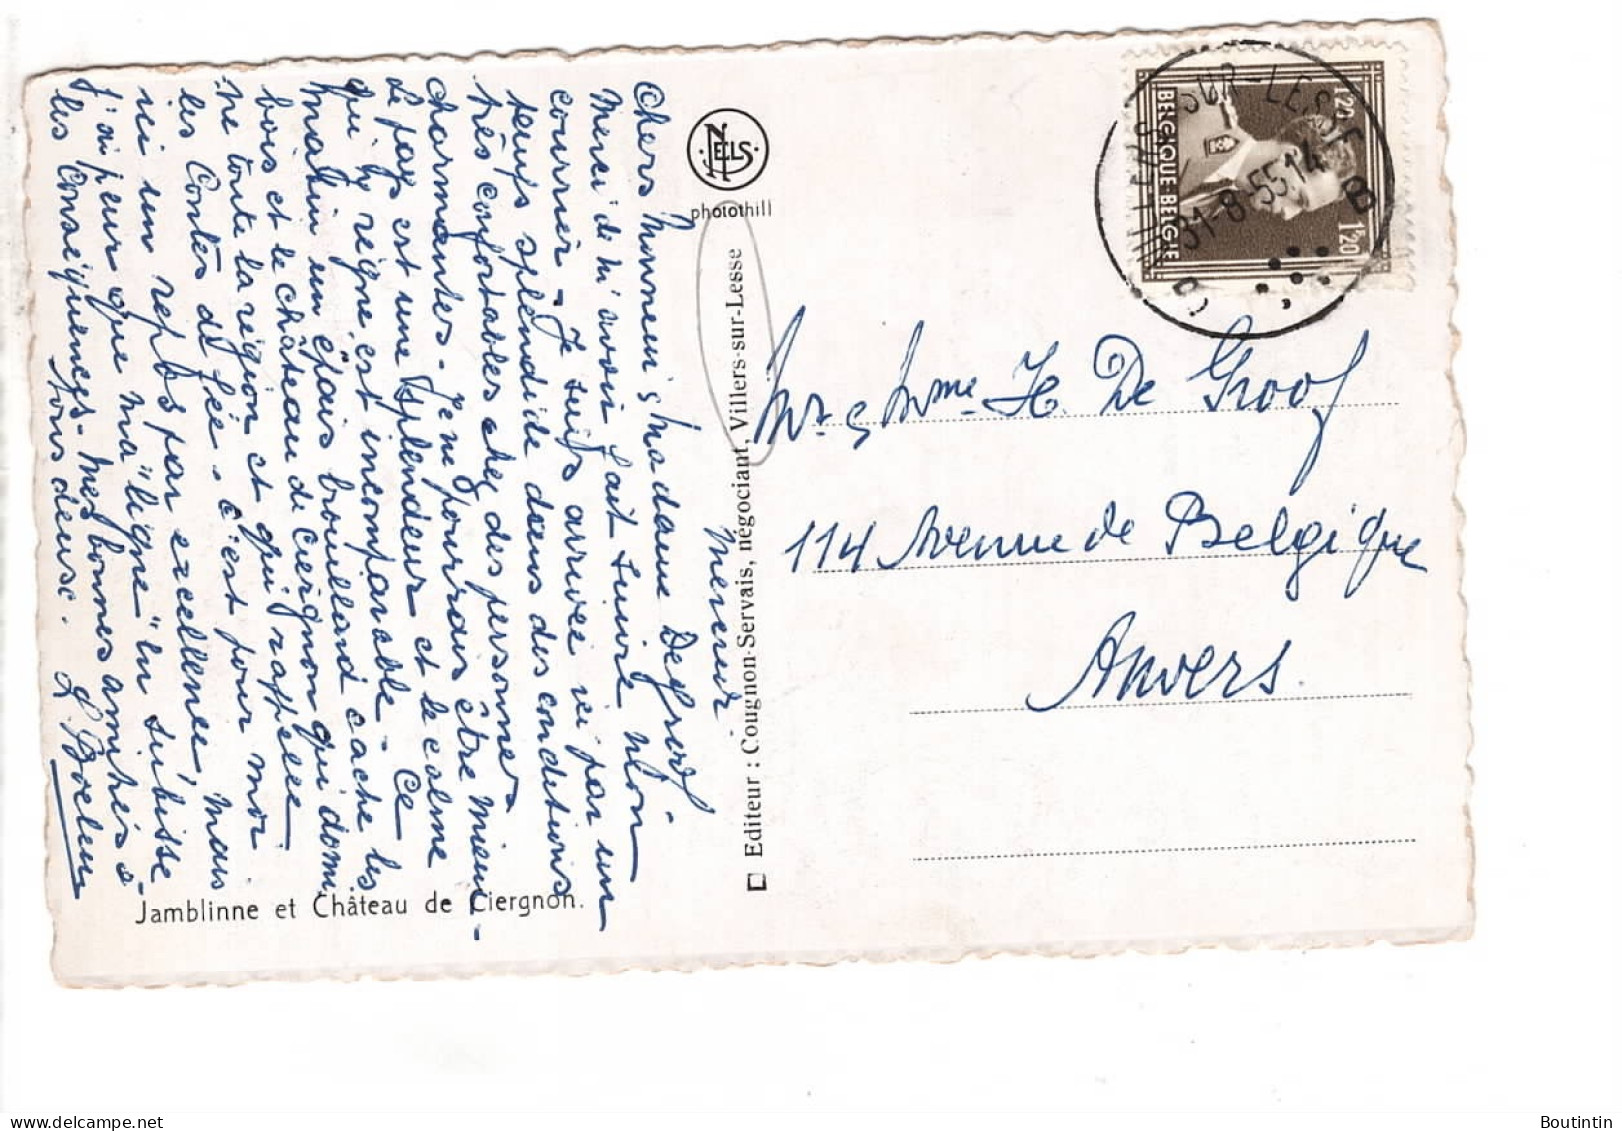 Chers Monneur & Madame Degroof.
Merci de m'avoir fait suivre mon
courrier - Je suis arrivée ici par un
temps splendide dans des conditions
très confortables chez des personnes
charmantes - Je ne pourrais être mieux -
Le pays est une splendeur et le calme
qui y règne est incomparable - Ce
matin un épais brouillard cache les
bois et le château de Ciergnon qui domi
ne toute la région et qui rappelle
les Contes de fée - c'est pour moi
ici un repos par excellence, mais
j'ai peur que ma "ligne" en subisse
les conséquences - mes bonnes amitiés à
tous deux. L Boelen
Jamblinne et Château de Ciergnon.
NELS
photothill
Editeur : Cougnon-Servais, négociant, Villers-sur-Lesse
BELGIQUE-BELGIE
1.20
1.20
SUR-LESSE
31-8-55 14
B
B
Mr & Mme H. De Groof
114 Avenue de Belgique
Anvers.
Boutintin